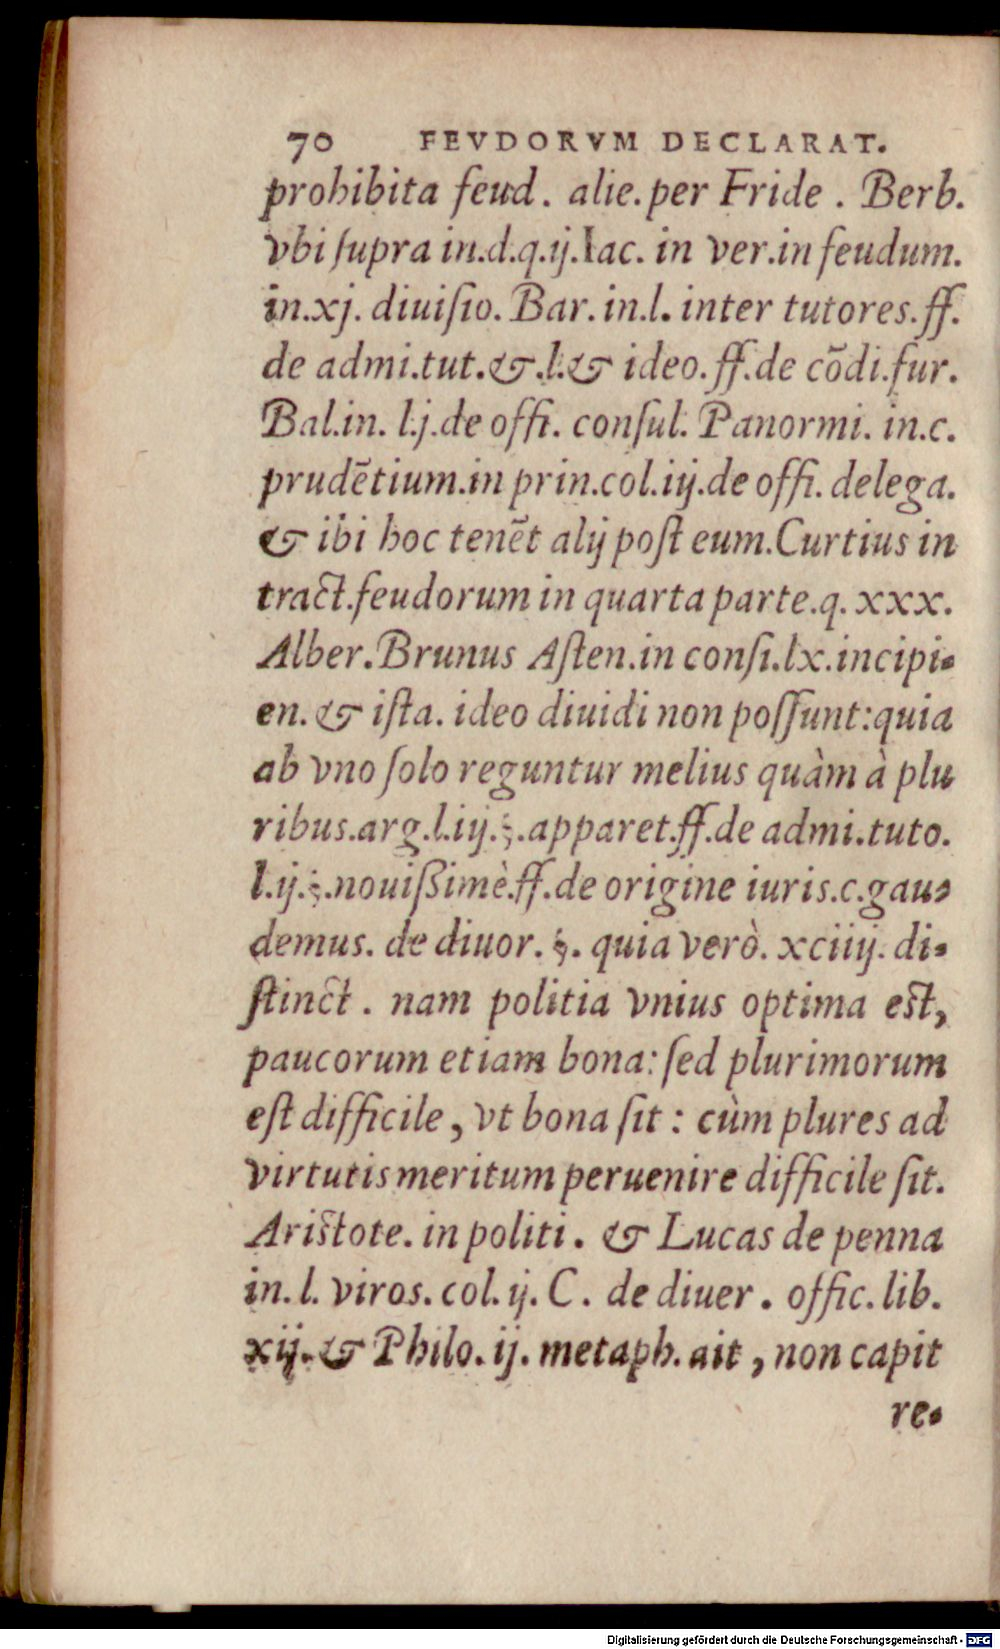 70 FEVDORVM DECLARAT.
prohibita feud. alie.per Fride. Berb.
vbi ſupra in.d.q.ij.Iac. in ver.in feudum.
in.xj. diuiſio. Bar. in.l. inter tutores.ff.
de admi.tut.&.l.& ideo.ff.de cõdi.fur.
Bal.in. l.j.de offi. conſul. Panormi. in.c.
prudẽtium.in prin.col.iij.de offi. delega.
& ibi hoc tenẽt alij poſt eum.Curtius in
tract.feudorum in quarta parte.q. xxx.
Alber.Brunus Aſten.in conſi.lx.incipi-
en. & iſta. ideo diuidi non poſſunt:quia
ab vno ſolo reguntur melius quàm à plu
ribus.arg.l.iij.§.apparet.ff.de admi.tuto.
l.ij.§.nouiſsimè.ff.de origine iuris.c.gau-
demus. de diuor. §. quia verò. xciiij. di-
ſtinct. nam politia vnius optima eſt,
paucorum etiam bona: ſed plurimorum
eſt difficile, vt bona ſit: cùm plures ad
virtutis meritum peruenire difficile ſit.
Ariſtote. in politi. & Lucas de penna
in. l. viros. col. ij. C. de diuer. offic. lib.
xij. & Philo. ij. metaph. ait, non capit
re-
Digitalisierung gefördert durch die Deutsche Forschungsgemeinschaft - DFG